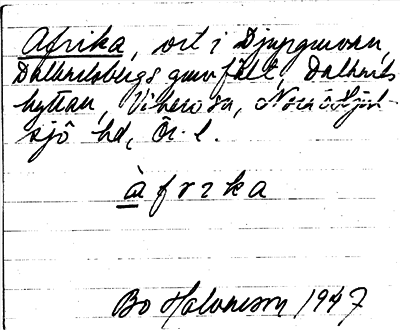 Afrika, ort i Djupgruvan,
Dalkarlsbergs gruvfält, Dalkarls-
hyttan, Vikers sn, Nora o Hjul-
sjö hd, Ör. l.
àfrika
Bo Halvarson 1947